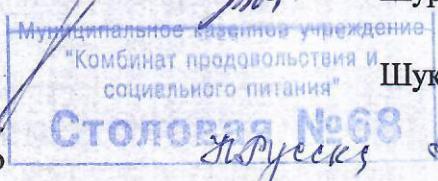 Шур
Муниципальное казенное учреждение
"Комбинат продовольствия и
социального питания"
Шук
Столовая №68